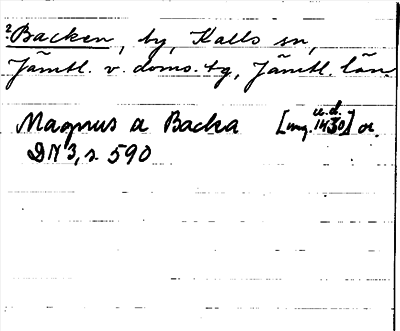 ? Backen, by, Kalls sn,
Jämtl. v. doms. tg, Jämtl. län.
u. d.
Magnus a Backa [omg. 1430] or.
DN 3, s 590